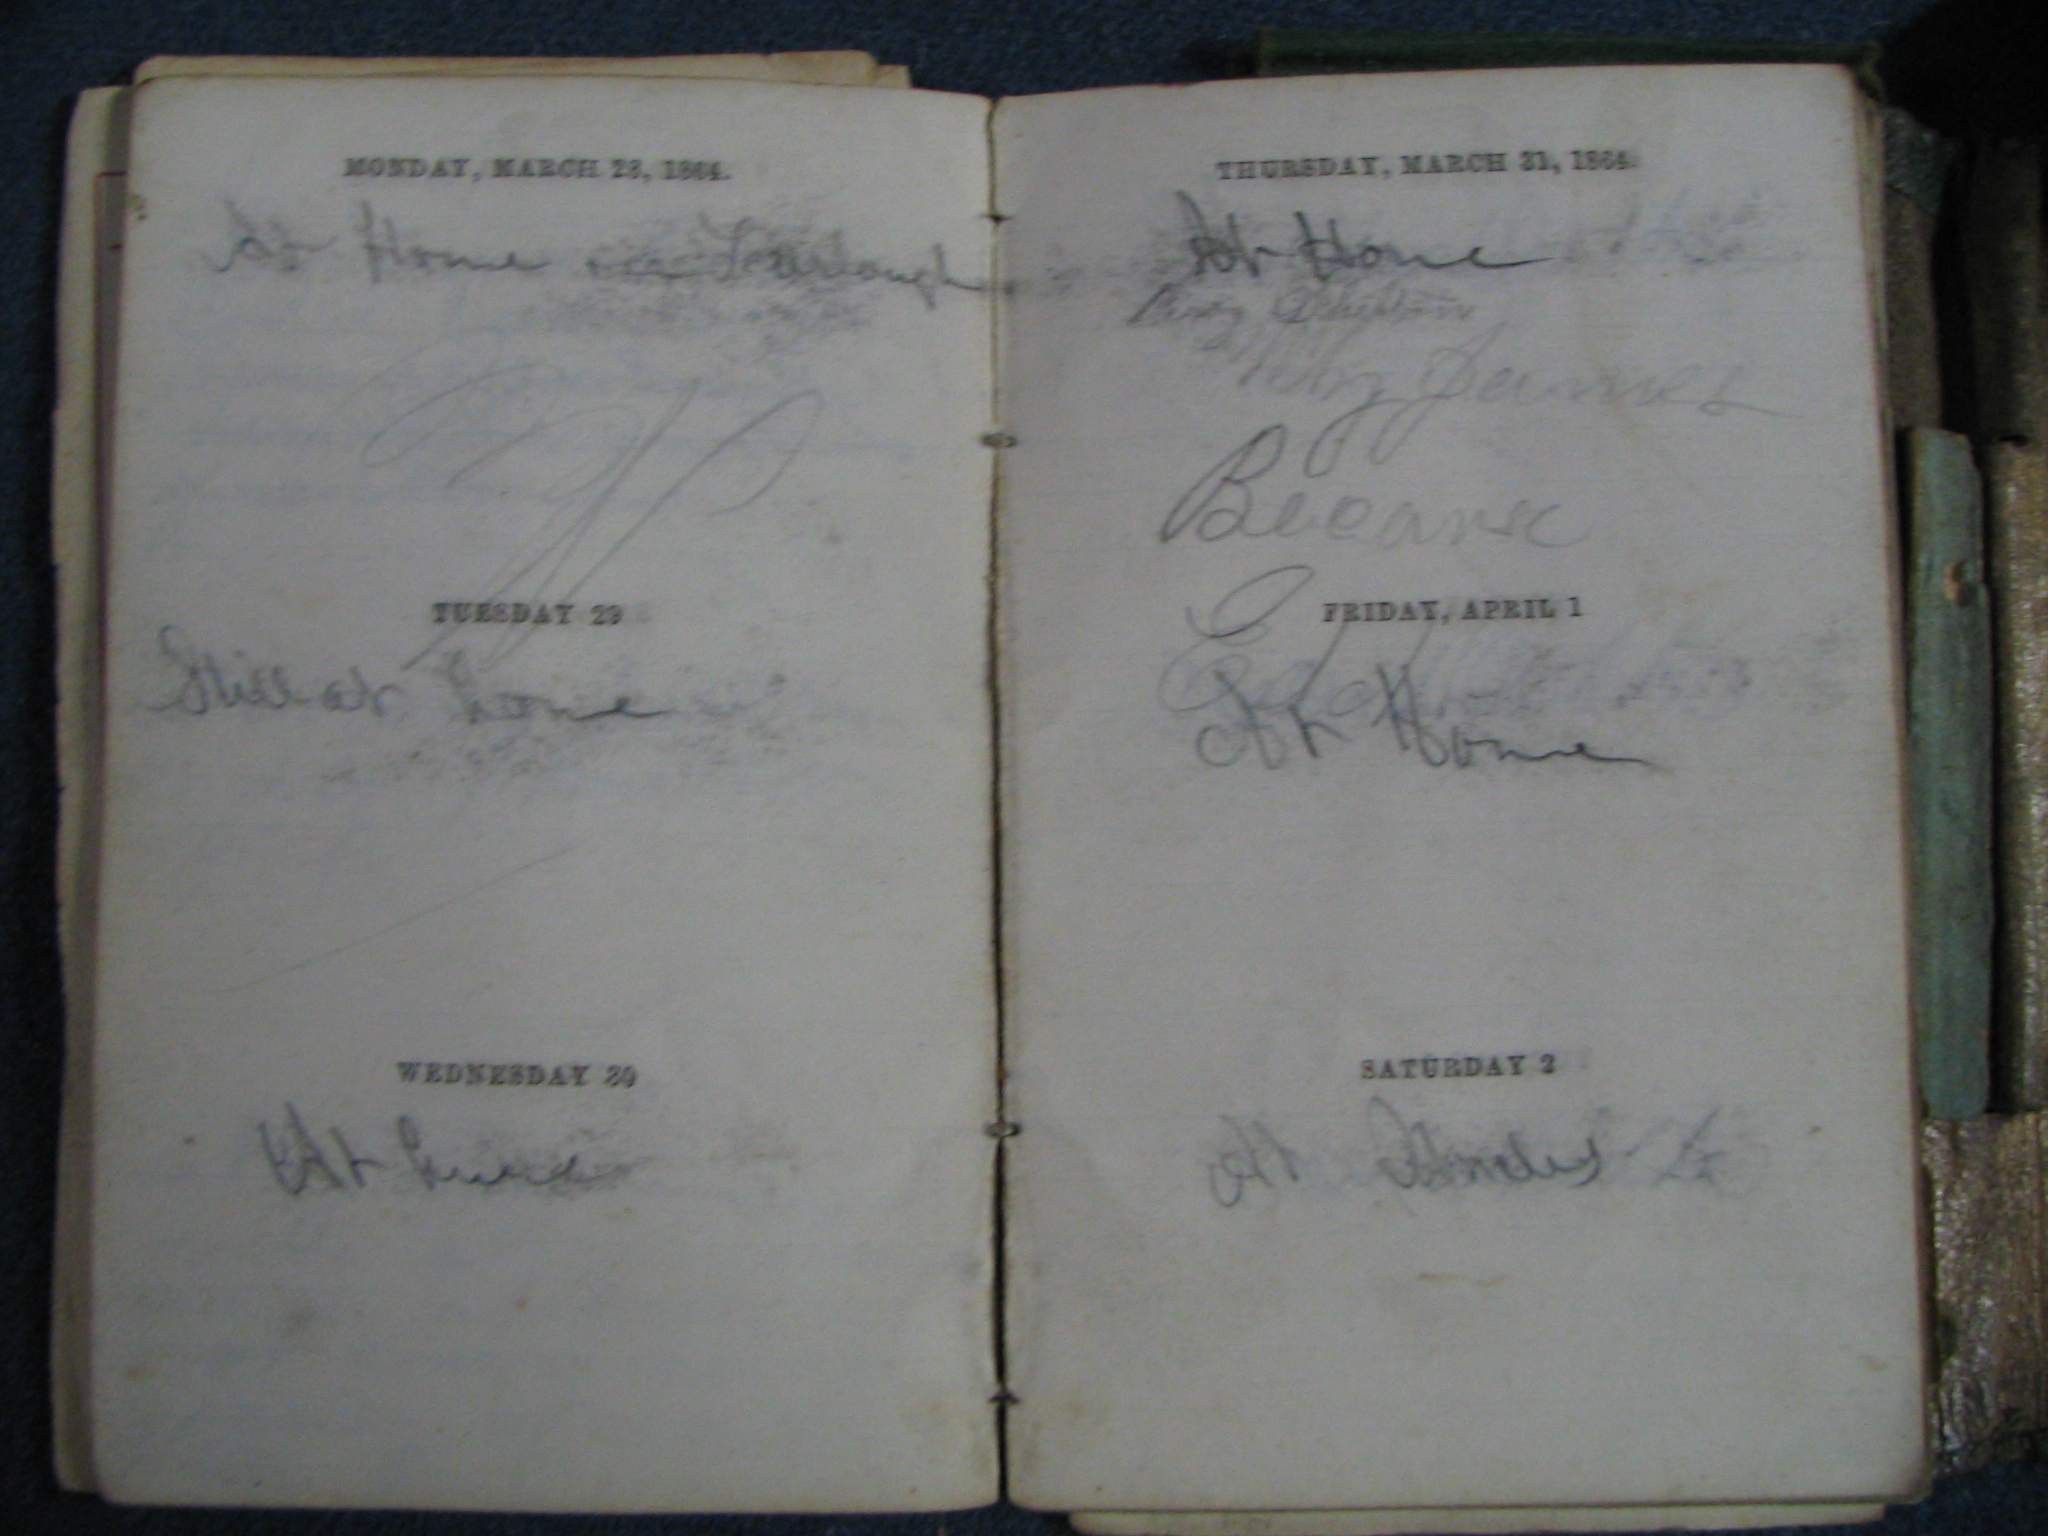 MONDAY, MARCH 28, 1864.
At Home on Fourlough
TUESDAY 29
Still at home
WEDNESDAY 30
At home
THURSDAY, MARCH 31, 1864.
At Home
James
Became
FRIDAY, APRIL 1
At Home
SATURDAY 2
At